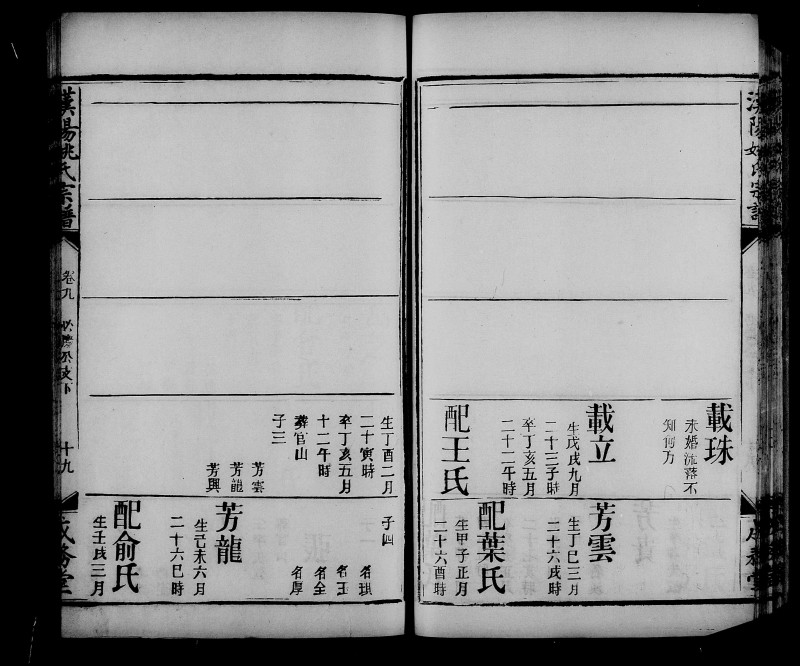 載珠
未婚流落不
知何方
載立
生戊戌九月
二十三子時
卒丁亥五月
二十二午時
配王氏
芳雲
生丁巳三月
二十六戌時
配葉氏
生甲子正月
二十六酉時
生丁酉二月
二十寅時
卒丁亥五月
十二午時
葬官山
子三
芳雲
芳龍
芳興
子四
名琪
名玉
名全
名厚
芳龍
生己未六月
二十六巳時
配俞氏
生壬戌三月
漢陽姚氏宗譜
卷九
十九